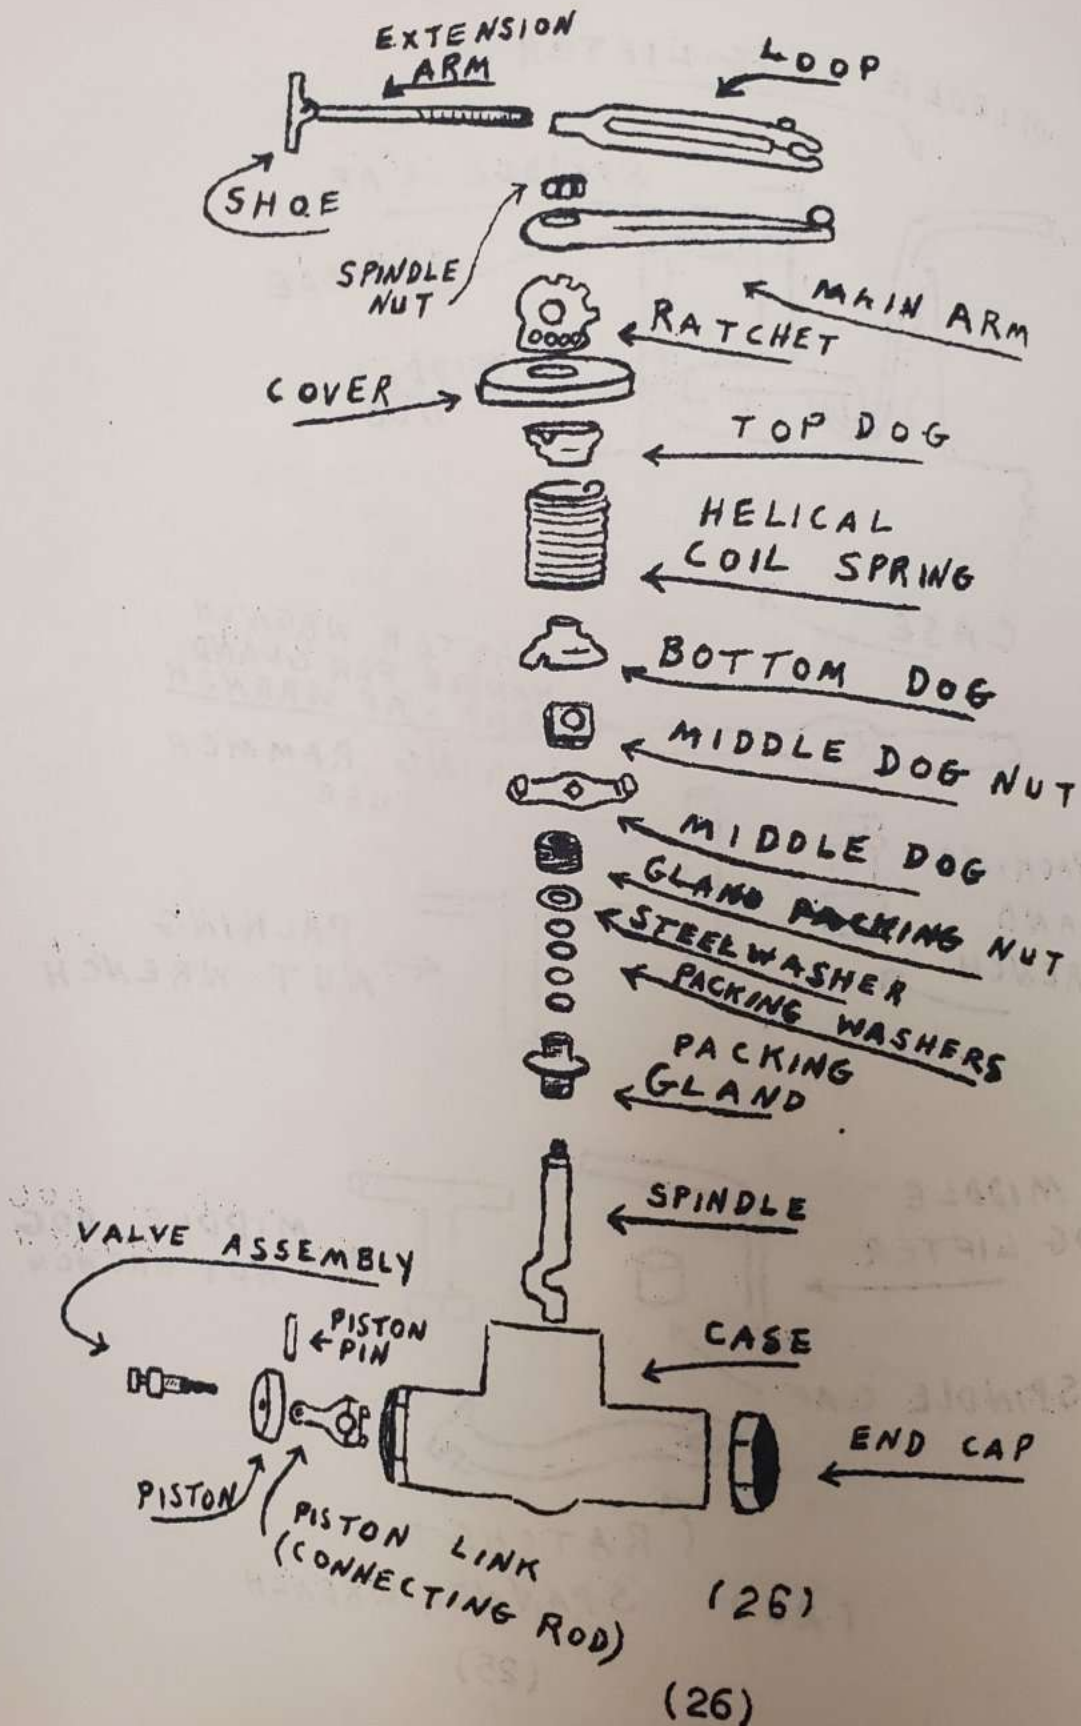 EXTENSION
ARM
LOOP
SHOE
SPINDLE
NUT
MAIN ARM
RATCHET
COVER
TOP DOG
HELICAL
COIL SPRING
BOTTOM DOG
MIDDLE DOG NUT
MIDDLE DOG
GLAND PACKING NUT
STEEL WASHER
PACKING WASHERS
PACKING
GLAND
SPINDLE
VALVE ASSEMBLY
PISTON
PIN
CASE
END CAP
PISTON
PISTON LINK
(CONNECTING ROD)
(26)
(26)